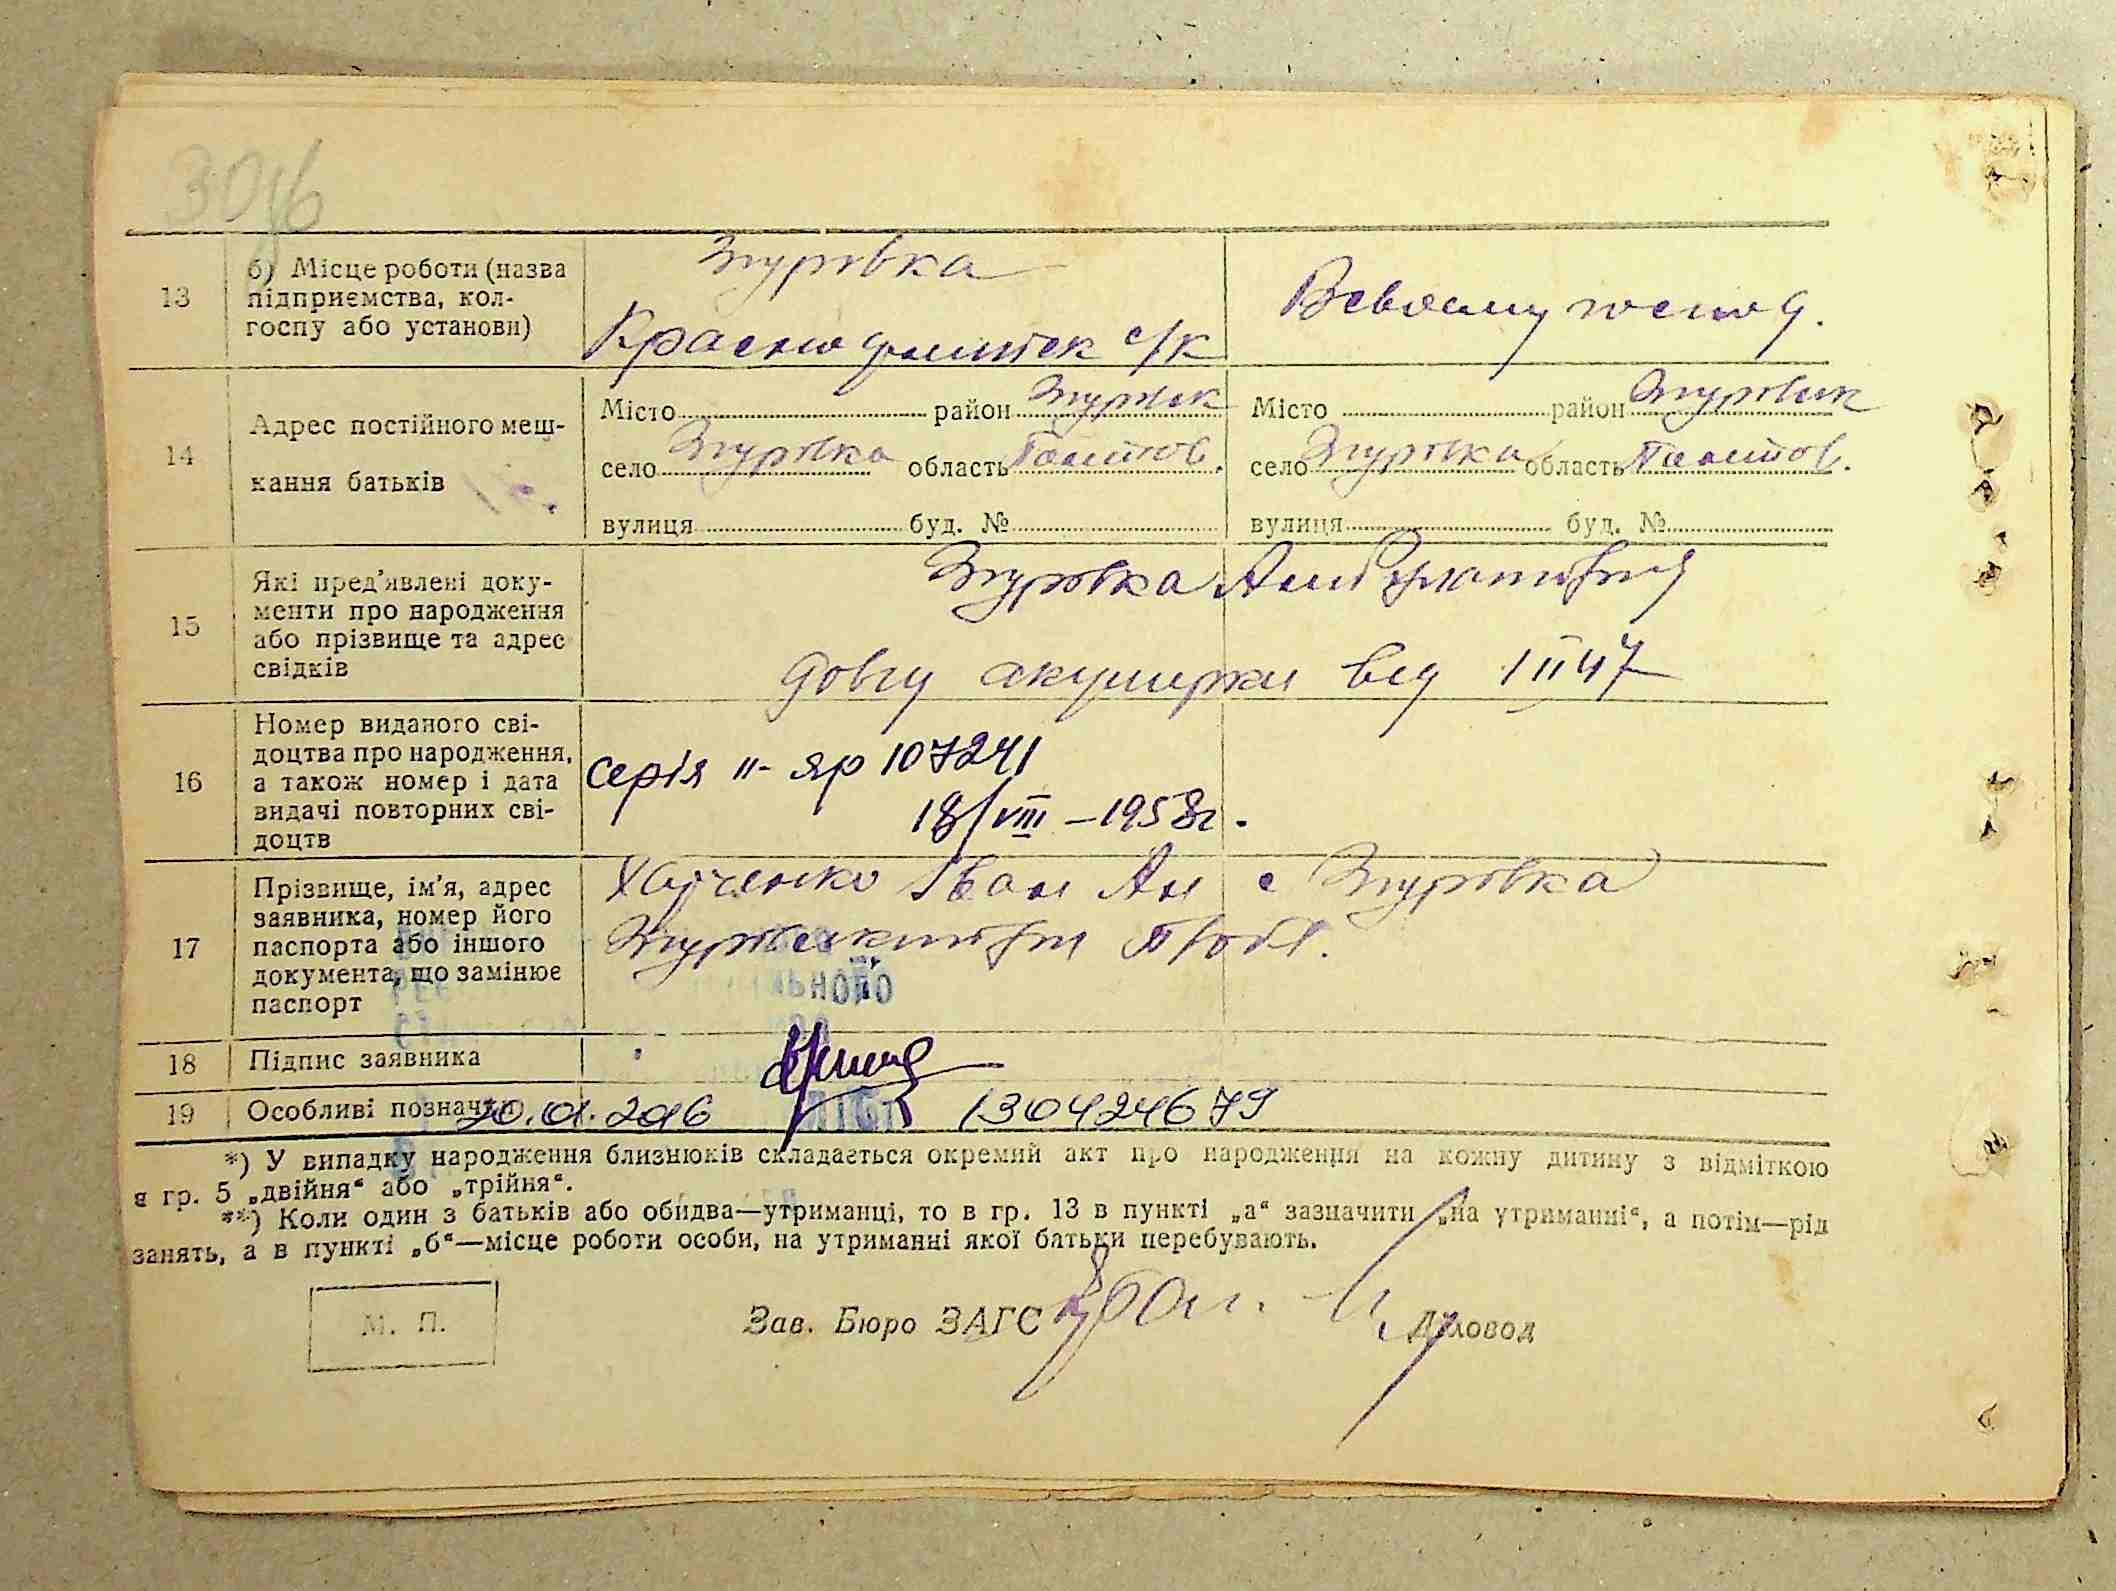 30
13
б) Місце роботи (назва
підприємства, кол-
госпу або установи)
Згурівка
с/к
В своєму господ.
14
Адрес постійного меш-
кання батьків
Місто район Згурівськ
село Згурівка область Полтавс.
вулиця буд. №
Місто район Згурівськ
село Згурівка область Полтавс.
вулиця буд. №
15
Які пред'явлені доку-
менти про народження
або прізвище та адрес
свідків
Згурівка
довку акушерки від 1 II 47
16
Номер виданого сві-
доцтва про народження,
а також номер і дата
видачі повторних сві-
доцтв
серія II-яр 107241
18/VIII-1958г.
17
Прізвище, ім'я, адрес
заявника, номер його
паспорта або іншого
документа, що замінює
паспорт
Харченко Іван Ан с Згурівка
18
Підпис заявника
19
Особливі позначки
20.01.2016 130424679
*) У випадку народження близнюків складається окремий акт про народження на кожну дитину з відміткою
в гр. 5 „двійня“ або „трійня“.
**) Коли один з батьків або обидва—утриманці, то в гр. 13 в пункті „а“ зазначити „на утриманні“, а потім—рід
занять, а в пункті „б“—місце роботи особи, на утриманні якої батьки перебувають.
М. П.
Зав. Бюро ЗАГС
Діловод